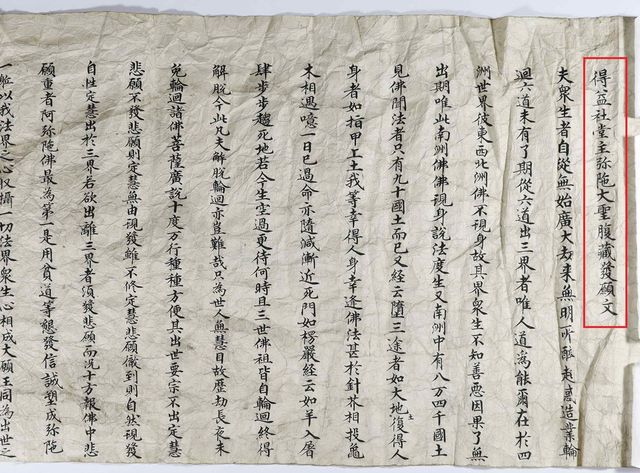 得益社堂主弥陁大聖腹藏發願文
夫衆生者自從無始廣大劫來無明所蔽起惑造業輪
迴六道未有了期從六道出三界者唯人道爲能爾在於四
洲世界彼東西北洲佛不現身故其界衆生不知善惡因果了無
出期唯此南洲佛佛現身說法度生又南洲中有八万四千國土
見佛聞法者只有九十國土而已又經云墮三途者如大地土復得人
身者如指甲上土我等幸得人身幸逢佛法甚於針芥相投龜
木相遇噫一日已過命亦隨減漸近死門如楞嚴經云如羊入屠
肆步步趍死地若今生空過更待何時且三世佛祖皆自輪迴終得
解脫今此凡夫解脫輪迴亦豈難哉只為世人無慧目故歷劫長夜未
免輪迴諸佛菩薩廣說十度万行種種方便其出世要宗不出定慧
悲願不發悲願則定慧無由現發雖不修定慧悲願到則自然現發
自性定慧出於三界若欲出離三界者須發悲願而況十方報佛中悲
願重者阿弥陁佛最為第一是用貧道等懇發信誠塑成弥陁
一軀以我法界之心収攝一切法界衆生心相成大願王同為出世之